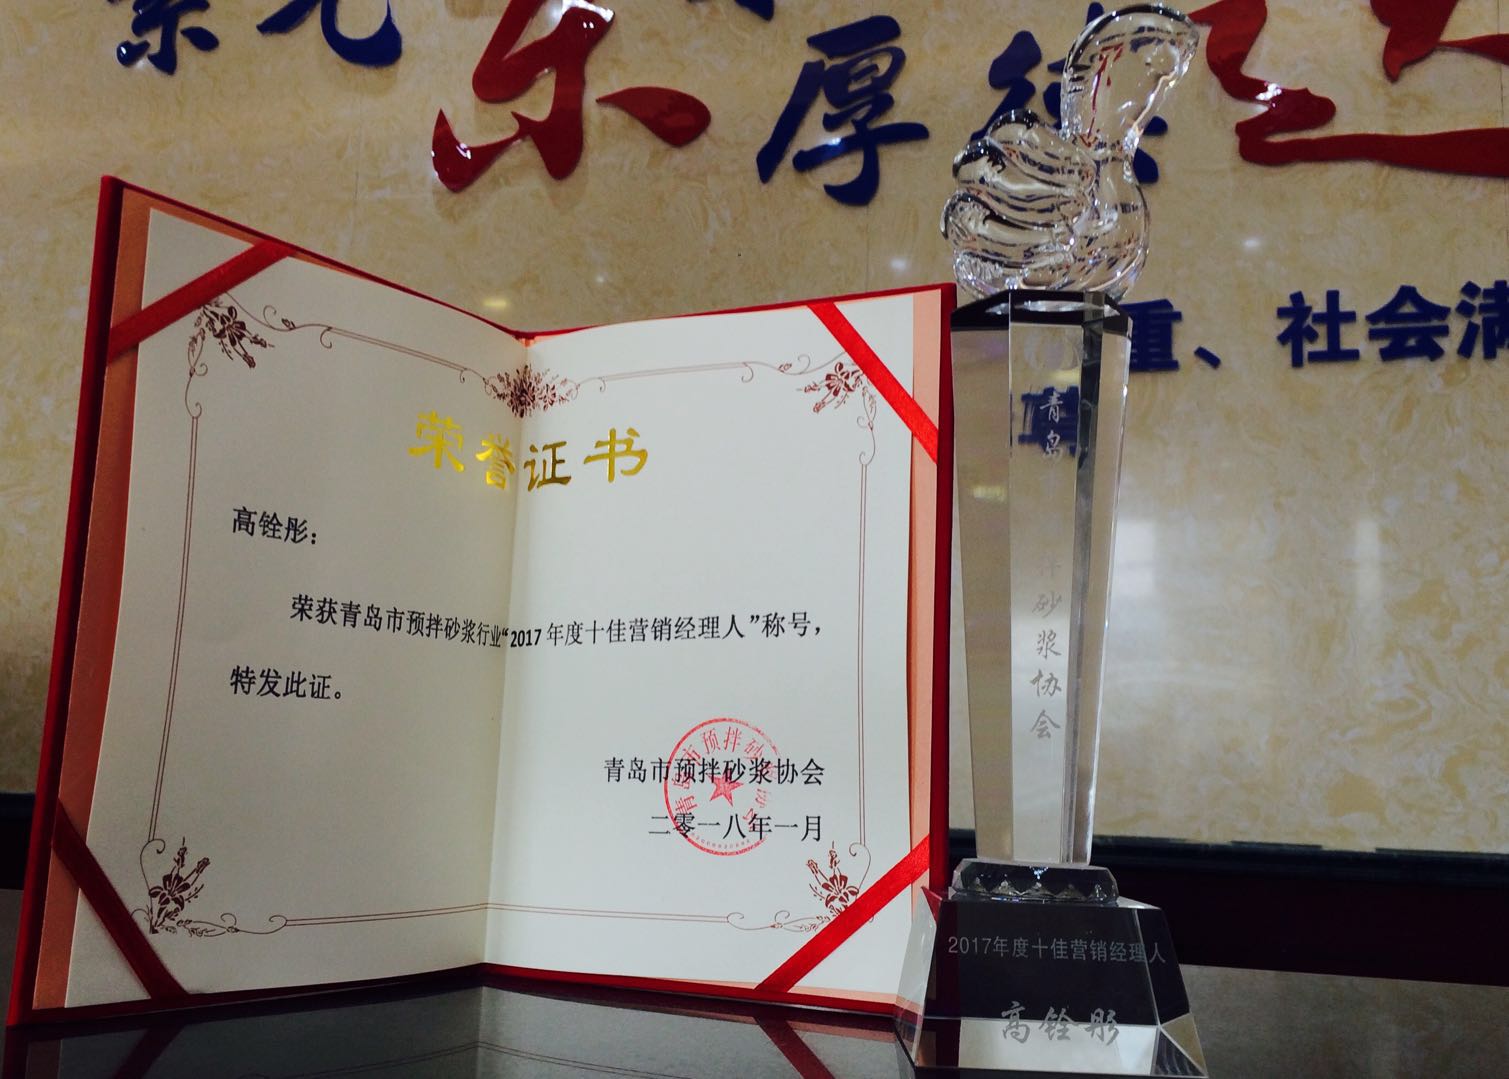 东
厚德
重、社会满
荣誉证书
高铨彤：
荣获青岛市预拌砂浆行业“2017年度十佳营销经理人”称号，
特发此证。
青岛市预拌砂浆协会
二零一八年一月
青岛
拌砂浆协会
2017年度十佳营销经理人
高铨彤